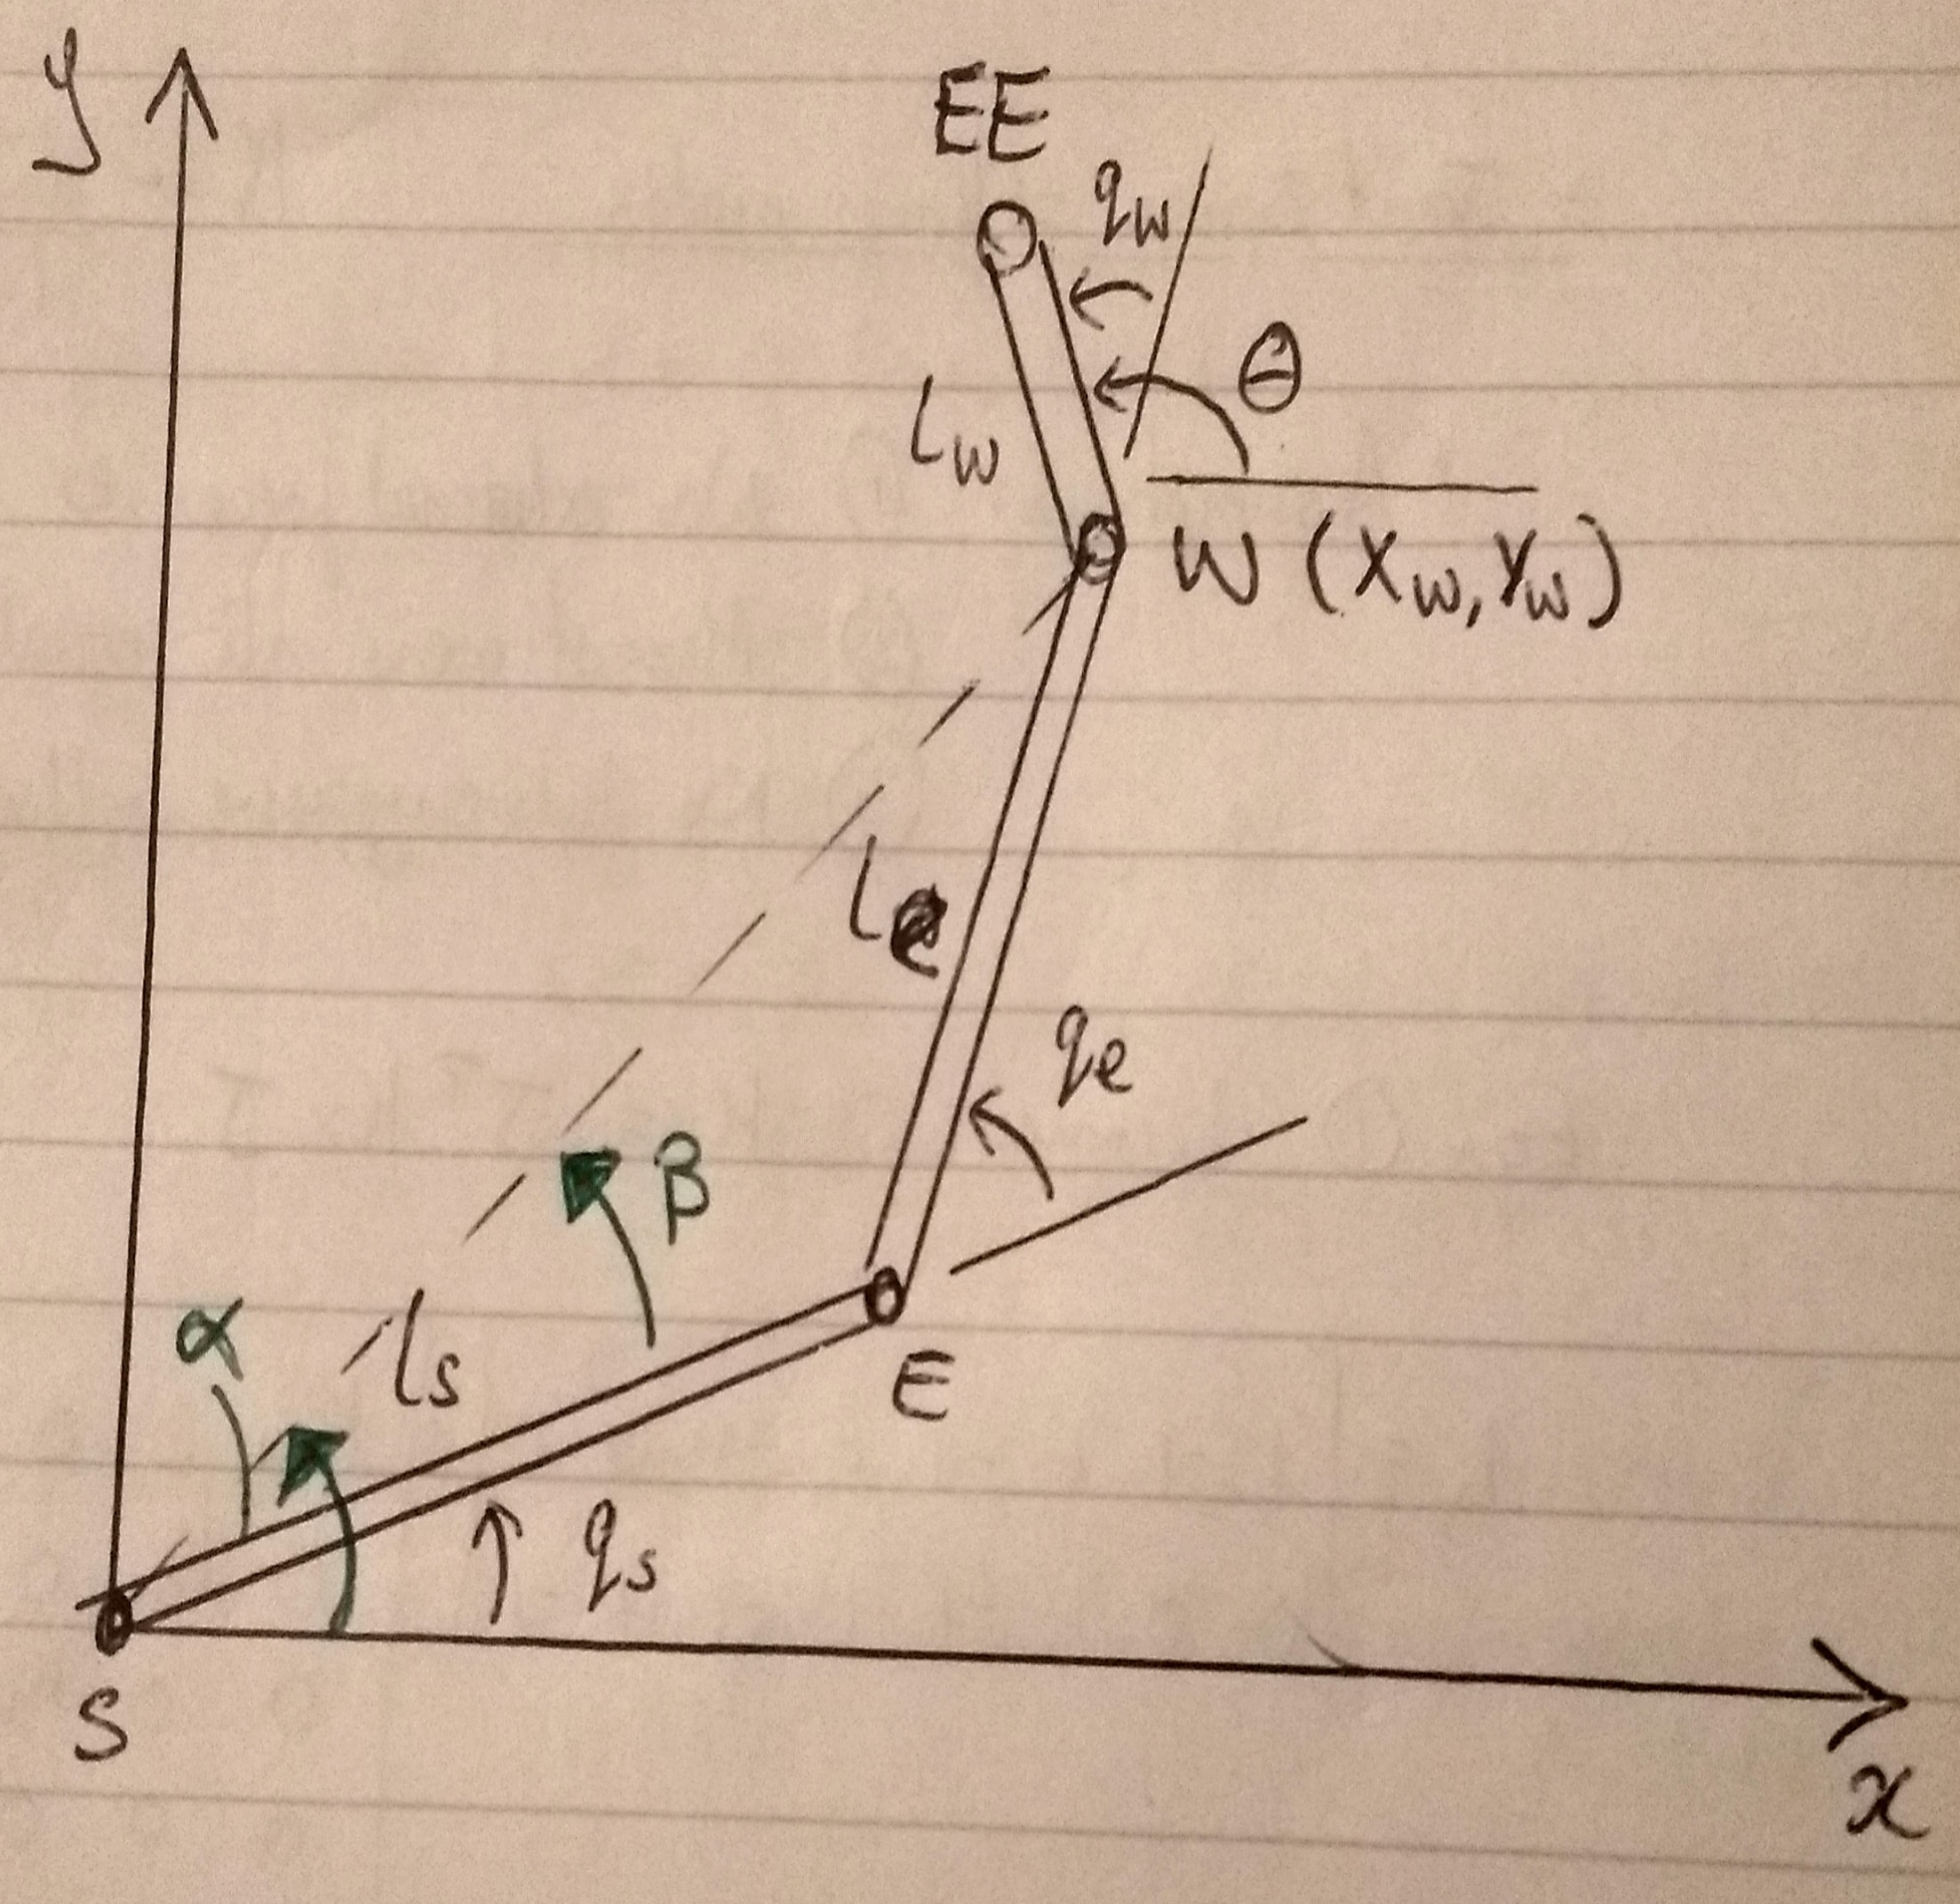 y
EE
q_w
θ
L_w
W (x_w, y_w)
L_e
q_e
β
α
L_s
E
q_s
S
x